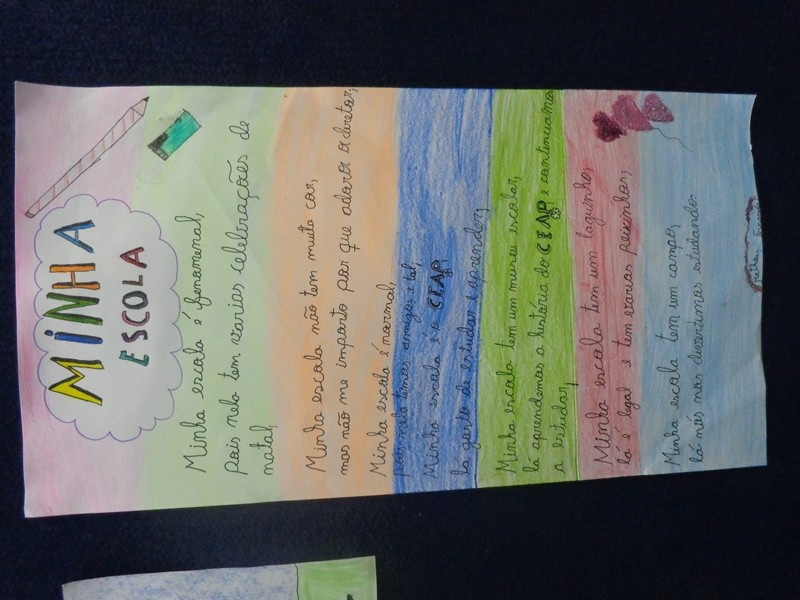 MINHA
ESCOLA
Minha escola é fenomenal,
pois nela tem varias celebrações de
natal,
Minha escola não tem muita cor,
mas não me importo por que adoro o diretor,
Minha escola é normal,
pois nela temos amigos e tal,
Minha escola é o CEAP,
lá gosto de estudar e aprender,
Minha escola tem um museu escolar,
lá aprendemos a história do CEAP, e continuamos
a estudar,
Minha escola tem um laguinho,
lá é legal e tem varios peixinhos,
Minha escola tem um campo,
lá nós nos divertimos estudando.